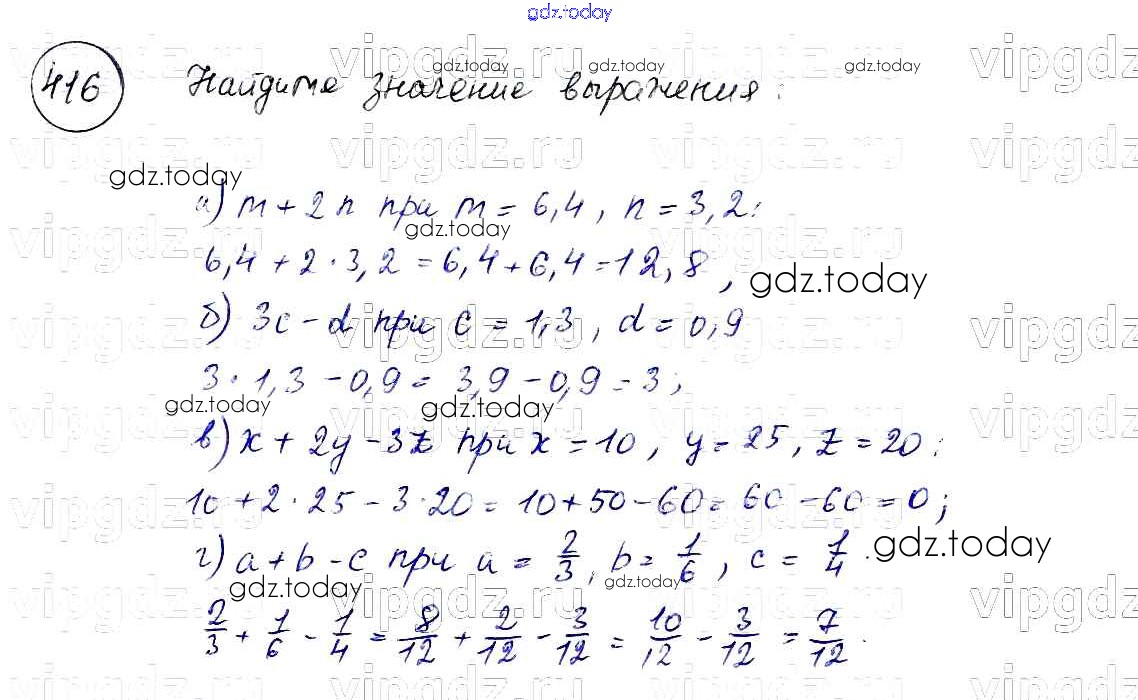 gdz.today
416 Найдите значение выражения:
а) m + 2n при m = 6,4, n = 3,2:
6,4 + 2 · 3,2 = 6,4 + 6,4 = 12,8,
б) 3c - d при c = 1,3, d = 0,9
3 · 1,3 - 0,9 = 3,9 - 0,9 = 3;
в) x + 2y - 3z при x = 10, y = 25, z = 20:
10 + 2 · 25 - 3 · 20 = 10 + 50 - 60 = 60 - 60 = 0;
г) a + b - c при a = 2/3, b = 1/6, c = 1/4.
2/3 + 1/6 - 1/4 = 8/12 + 2/12 - 3/12 = 10/12 - 3/12 = 7/12.